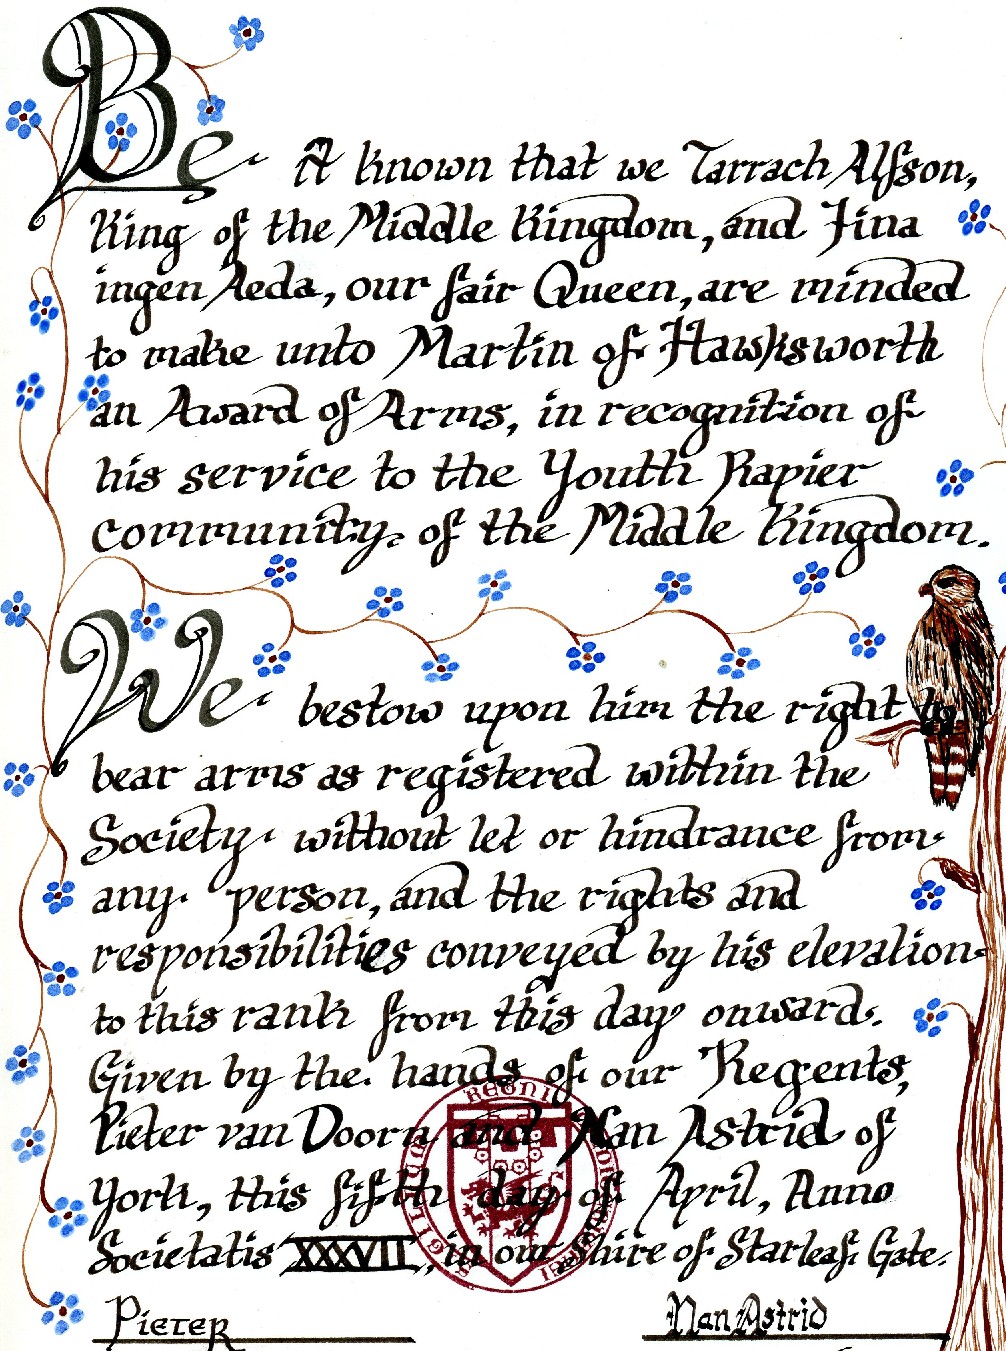 Be it known that we Tarrach Alfson,
King of the Middle Kingdom, and Fina
ingen Aeda, our fair Queen, are minded
to make unto Martin of Hawksworth
an Award of Arms, in recognition of
his service to the Youth Rapier
community of the Middle Kingdom.
We bestow upon him the right to
bear arms as registered within the
Society without let or hindrance from
any person, and the rights and
responsibilities conveyed by his elevation
to this rank from this day onward.
Given by the hands of our Regents,
Pieter van Doorn and Nan Astrid of
York, this fifth day of April, Anno
Societatis XXXVII, in our Shire of Starleaf Gate.
Pieter Nan Astrid
SIGILLUM REGNI